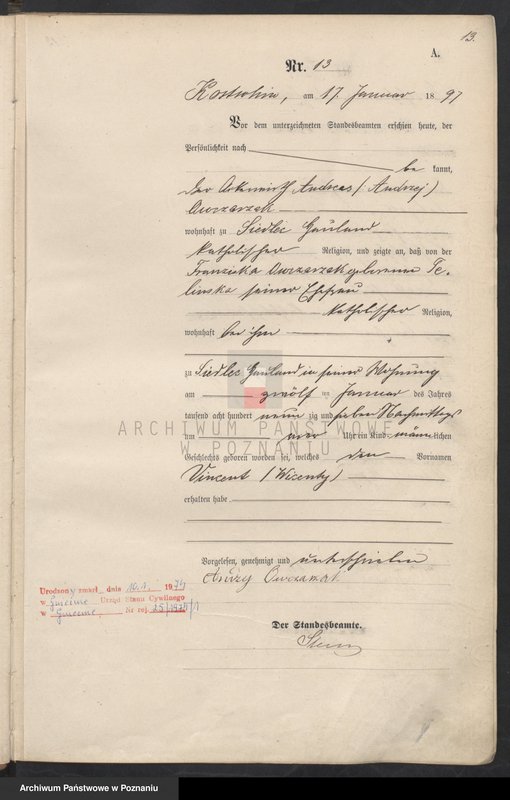 13.
A.
Nr. 13
Kostschin, am 17. Januar 1897
Vor dem unterzeichneten Standesbeamten erschien heute, der
Persönlichkeit nach
be kannt,
der Ackerwirth Andreas (Andrzej)
Owczarzak
wohnhaft zu Siedlec Hauland
katholischer Religion, und zeigte an, daß von der
Franziska Owczarzak geborenen Te-
linska seiner Ehefrau
katholischer Religion,
wohnhaft bei ihm
zu Siedlec Hauland in seiner Wohnung
am zwölf ten Januar des Jahres
tausend acht hundert neun zig und sieben Nachmittags
um Uhr ein Kind männlichen
Geschlechts geboren worden sei, welches den Vornamen
Vincent (Wicenty)
erhalten habe
Vorgelesen, genehmigt und unterschrieben
Andrzej Owczarzak
Der Standesbeamte.
Urodzony zmarł dnia 16.1. 1974
w Gnieźnie Urząd Stanu Cywilnego
w Gnieźnie Nr rej 25/1974/1
ARCHIWUM PAŃSTWOWE
W POZNANIU
Archiwum Państwowe w Poznaniu